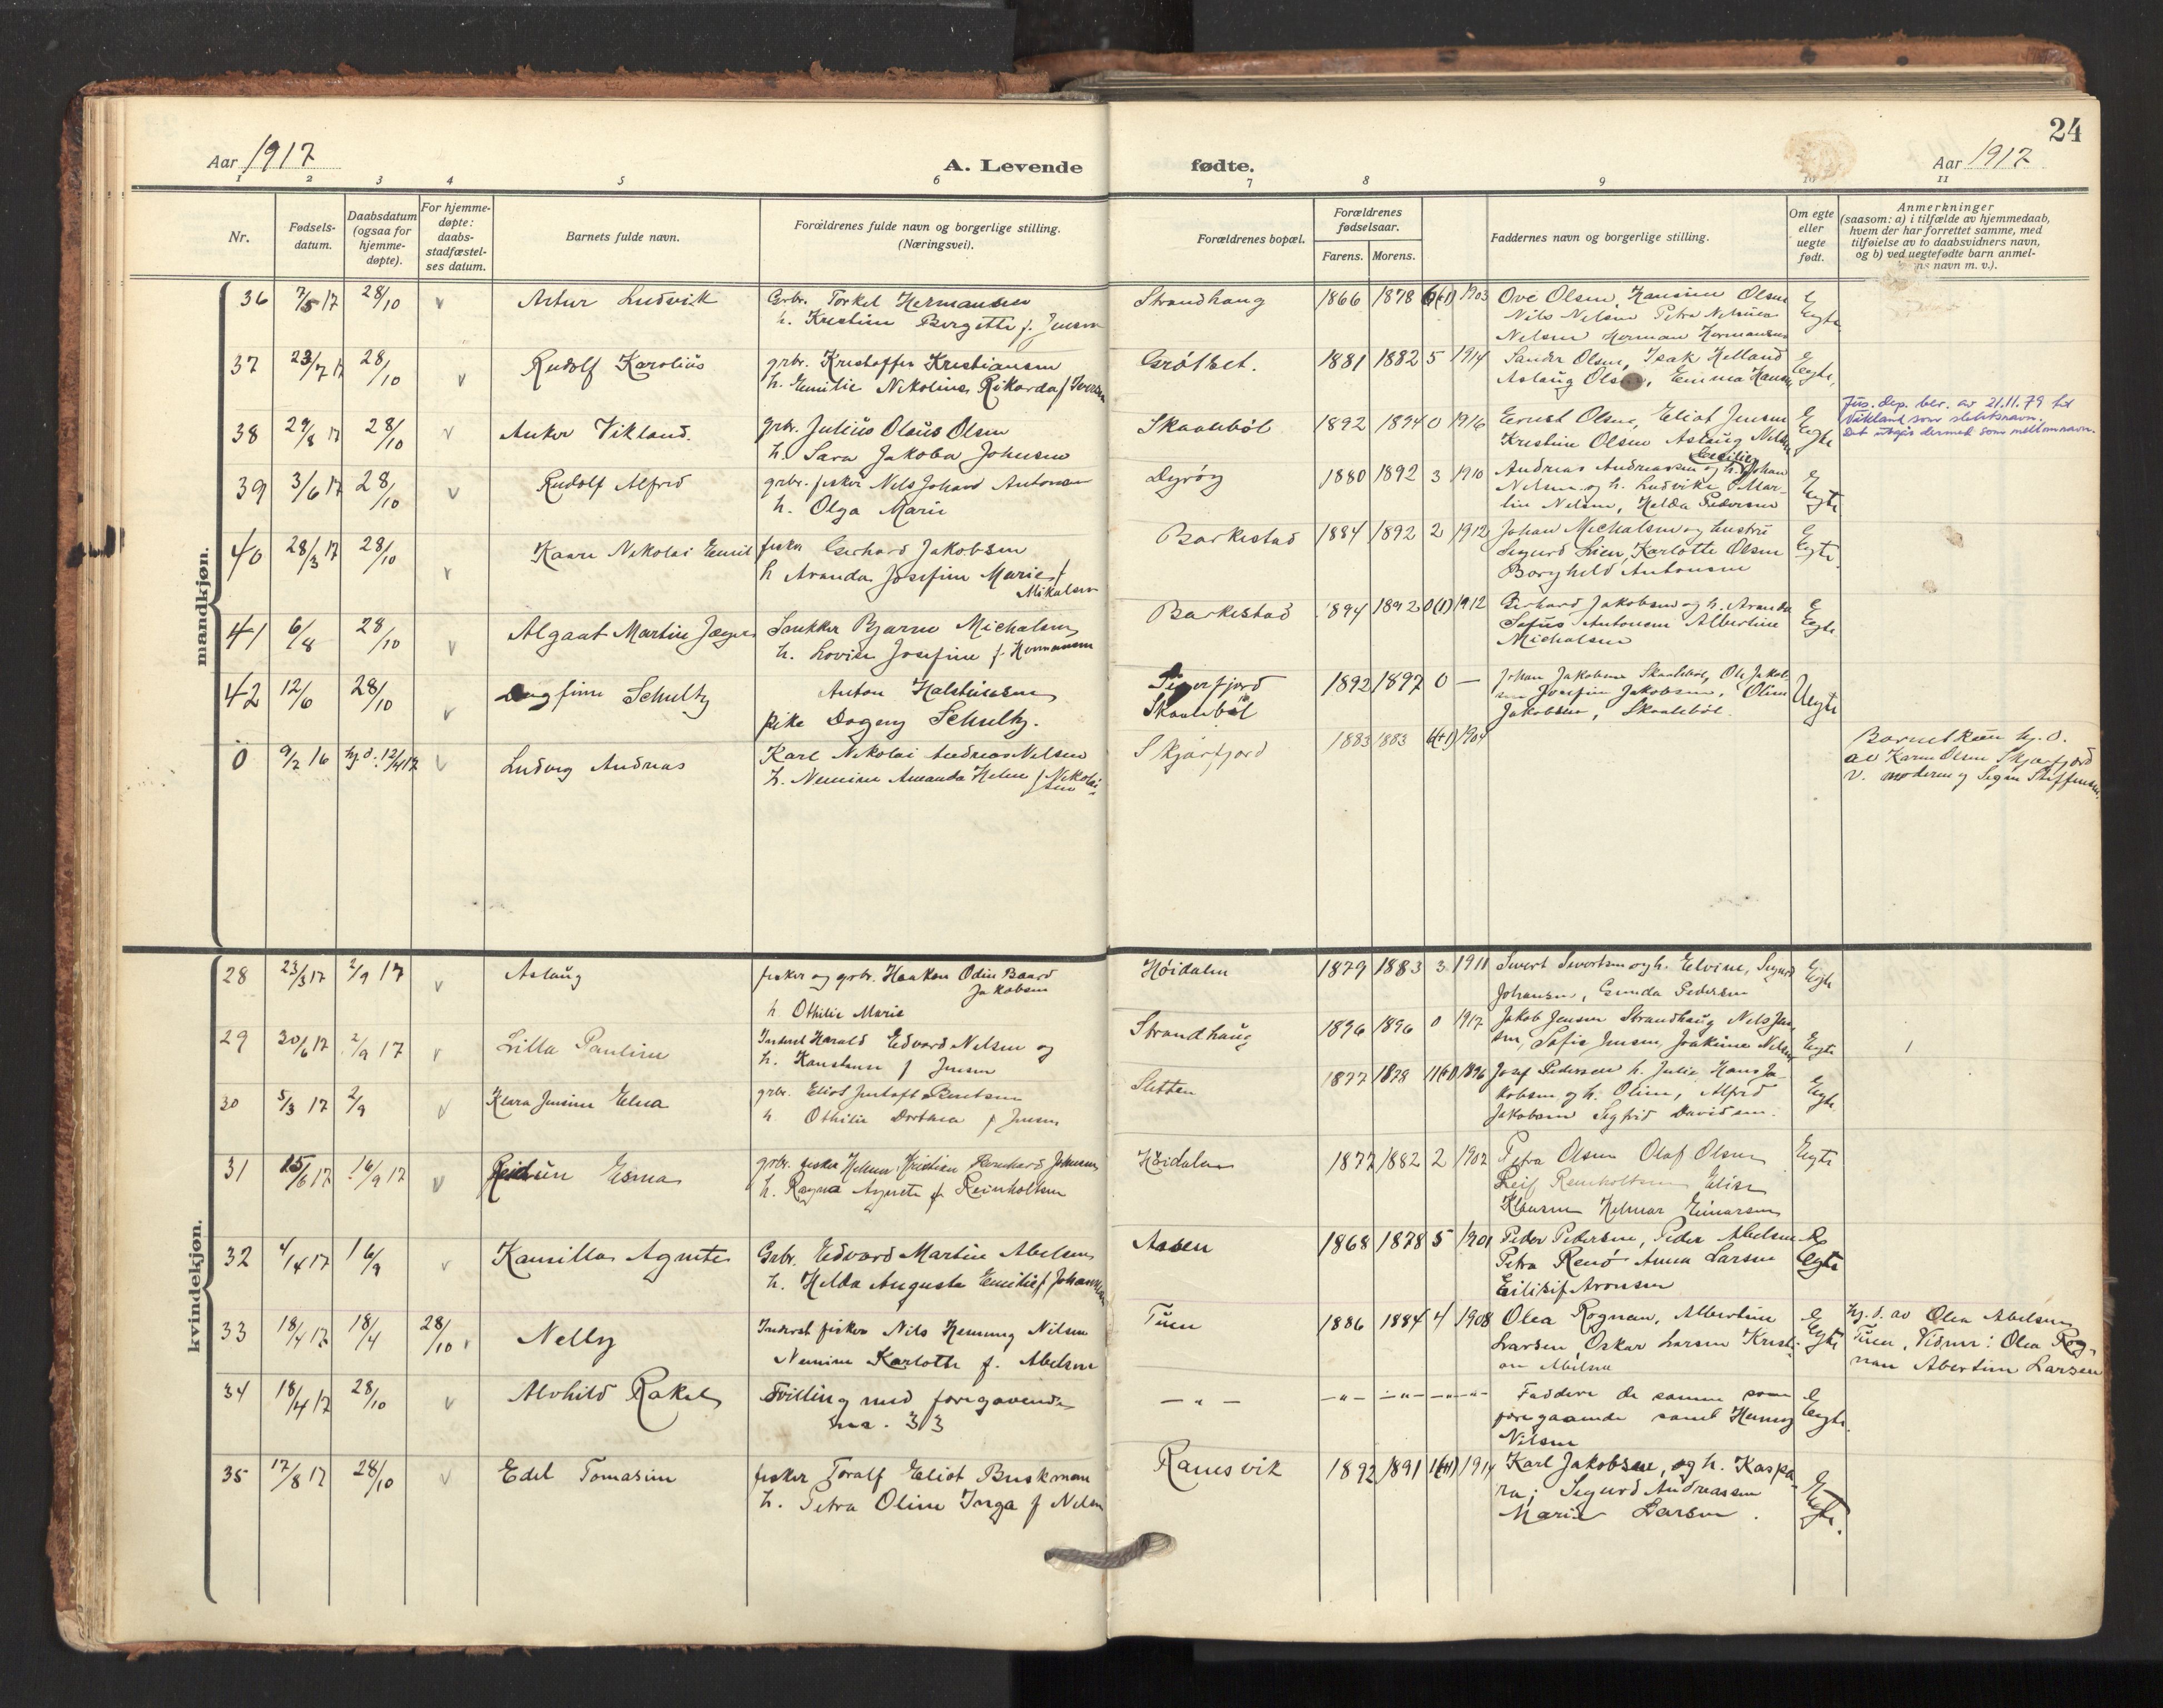 24
Aar 1917 A. Levende fødte. Aar 1917
1 2 3 4 5 6 7 8 9 10 11
Nr.
Fødsels-
datum.
Daabsdatum
(ogsaa for
hjemme-
døpte).
For hjemme-
døpte:
daabs-
stadfæstel-
ses datum.
Barnets fulde navn.
Forældrenes fulde navn og borgerlige stilling.
(Næringsvei).
Forældrenes bopæl.
Forældrenes
fødselsaar.
Farens. Morens.
Faddernes navn og borgerlige stilling.
Om egte
eller
uegte
født.
Anmerkninger
(saasom: a) i tilfælde av hjemmedaab,
hvem der har forrettet samme, med
tilføielse av to daabsvidners navn,
og b) ved uegtefødte barn anmel-
ns navn m. v.).
mandkjøn.
36 7/5 17 28/10 v Artur Ludvik
Grbr. Torkel Hermansen
h. Kristine Bergitte f. Jensen
Strandhaug 1866 1878 6(+1) 1903
Ove Olsen, Hansine Olsen
Nils Nelsen Petra Nelsen
Nelsen Herman Hermansen
Egte
37 23/7 17 28/10 v Rudolf Karolius
grbr. Kristoffer Kristiansen
h. Emilie Nikoline Rikarda f Iversen
Grøttet. 1881 1882 5 1914
Sander Olsen, Isak Helland
Aslaug Olsen, Emma Hansen
Egte
38 29/8 17 28/10 v Anker Vikland.
grbr. Julius Olaus Olsen
h. Sara Jakoba Johnsen
Skaalebøl 1892 1894 0 1916
Ernst Olsen, Eliot Jensen
Kristine Olsen Aslaug Nelsen
Egte
Jus. dep. bev. av 21.11.79 til
Vikland som slektsnavn.
Det utgår dermed som mellomnavn.
39 3/6 17 28/10 v Rudolf Alfred
grbr. fisker Nels Johard Antonsen
h. Olga Marie
Dyrøy 1880 1892 3 1910
Andreas Andreassen og h. Cecilie Johan
Nelsen og h. Ludvikke Mar-
lin Nelsen, Helda Pedersen
Egte
40 28/3 17 28/10 v Kaare Nikolai Emil
fisker Gerhard Jakobsen
h Aranda Josefine Marie f
Mikalsen
Barkestad 1884 1892 2 1912
Johan Michalsen og hustru
Sigurd Lien, Karlotte Olsen
Borghild Antonsen
Egte.
41 6/8 28/10 v Algaat Martin Jæger
Snekker Bjarne Michalsen
h. Lovise Josefine f. Hermansen
Barkestad 1894 1892 0(1) 1912
Gerhard Jakobsen og h. Aranda
Sofus Antonsen Albertine
Michalsen
Egte
42 12/6 28/10 v Dagfinn Schultz
Anton Halstensen
pike Dagny Schultz.
Sigerfjord
Skaalebøl
1892 1897 0 —
Johan Jakobsen Skaalebøl, Ole Jakob-
sen Josefine Jakobsen, Oline
Jakobsen, Skaalebøl.
Uegte
0 9/2 16 hj.d. 12/4 17 v Ludvig Andreas
Karl Nikolai Andreas Nelsen
h. Nemine Amanda Helene f Nikolai-
sen
Skjørfjord 1883 1883 6(+1) 1904
Barnet kun hj.d.
av Karen Olsen Skjørfjord
v. moderen og Signe Steffensen.
kvindekjøn.
28 23/3 17 2/9 17 v Aslaug
fisker og grbr. Haakon Odin Baard
Jakobsen
h. Othilie Marie
Høidalen 1879 1883 3 1911
Sivert Sivertsen og h. Elvine, Sigurd
Johansen, Gunda Pedersen
Egte
29 30/6 17 2/9 17 v Lilla Pauline
Inderst Harald Edvard Nelsen og
h. Konstanse f Jensen
Strandhaug 1896 1896 0 1917
Jakob Jensen Strandhaug Nels Jen-
sen, Sofie Jensen, Joakime Nelsen
Egte
30 5/3 17 2/9 v Klara Jensine Elna
grbr. Eliot Justoft Bentsen
h. Othilie Dorthea f Jensen
Sletten 1877 1878 11(+1) 1896
Josef Pedersen h. Julie Hans Ja-
kobsen og h. Oline, Alfred
Jakobsen Sigfrid Davidsen.
Egte
31 15/6 17 16/9 17 v Reidun Esma
grbr. fisker Helmer Kristian Bernhard Johansen
h. Ragna Agnete f. Reinholtsen
Høidalen 1877 1882 2 1907
Petra Olsen Olaf Olsen
Leif Reinholtsen Elise
Klausen Helmar Einarsen
Egte
32 4/4 17 16/9 v Kamilla Agnete
Grbr. Edvard Martin Abelsen
h. Helda Augusta Emilie f Johansen
Aasen 1868 1878 5 1901
Peder Pedersen, Peder Abelsen
Petra Renø Anna Larsen
Eilisif Aronsen
Egte
33 18/4 17 18/4 28/10 Nelly
Inderst fisker Nils Heming Nilsen
Nemine Karlotte f. Abelsen
Tuen 1886 1884 4 1908
Olea Rognan, Albertine
Larsen, Oskar Larsen Kristi-
an Abelsen
Egte
Hj.d. av Olea Abelsen
Tuen, Vidner: Olea Rog-
nan Abertine Larsen
34 18/4 17 28/10 v Alvhild Rakel
Tvilling med foregaaende
no. 33
— " — — " — — " — — " —
Faddere de samme som
foregaaende samt Heming
Nilsen
Egte.
35 17/8 17 28/10 v Edel Tomasine
fisker Toralf Eliot Buskman
h. Petra Oline Inga f Nelsen
Ramsvik 1892 1891 1(+1) 1914
Karl Jakobsen, og h. Kaspa-
ra; Sigurd Andreassen
Marie Larsen.
Egte.